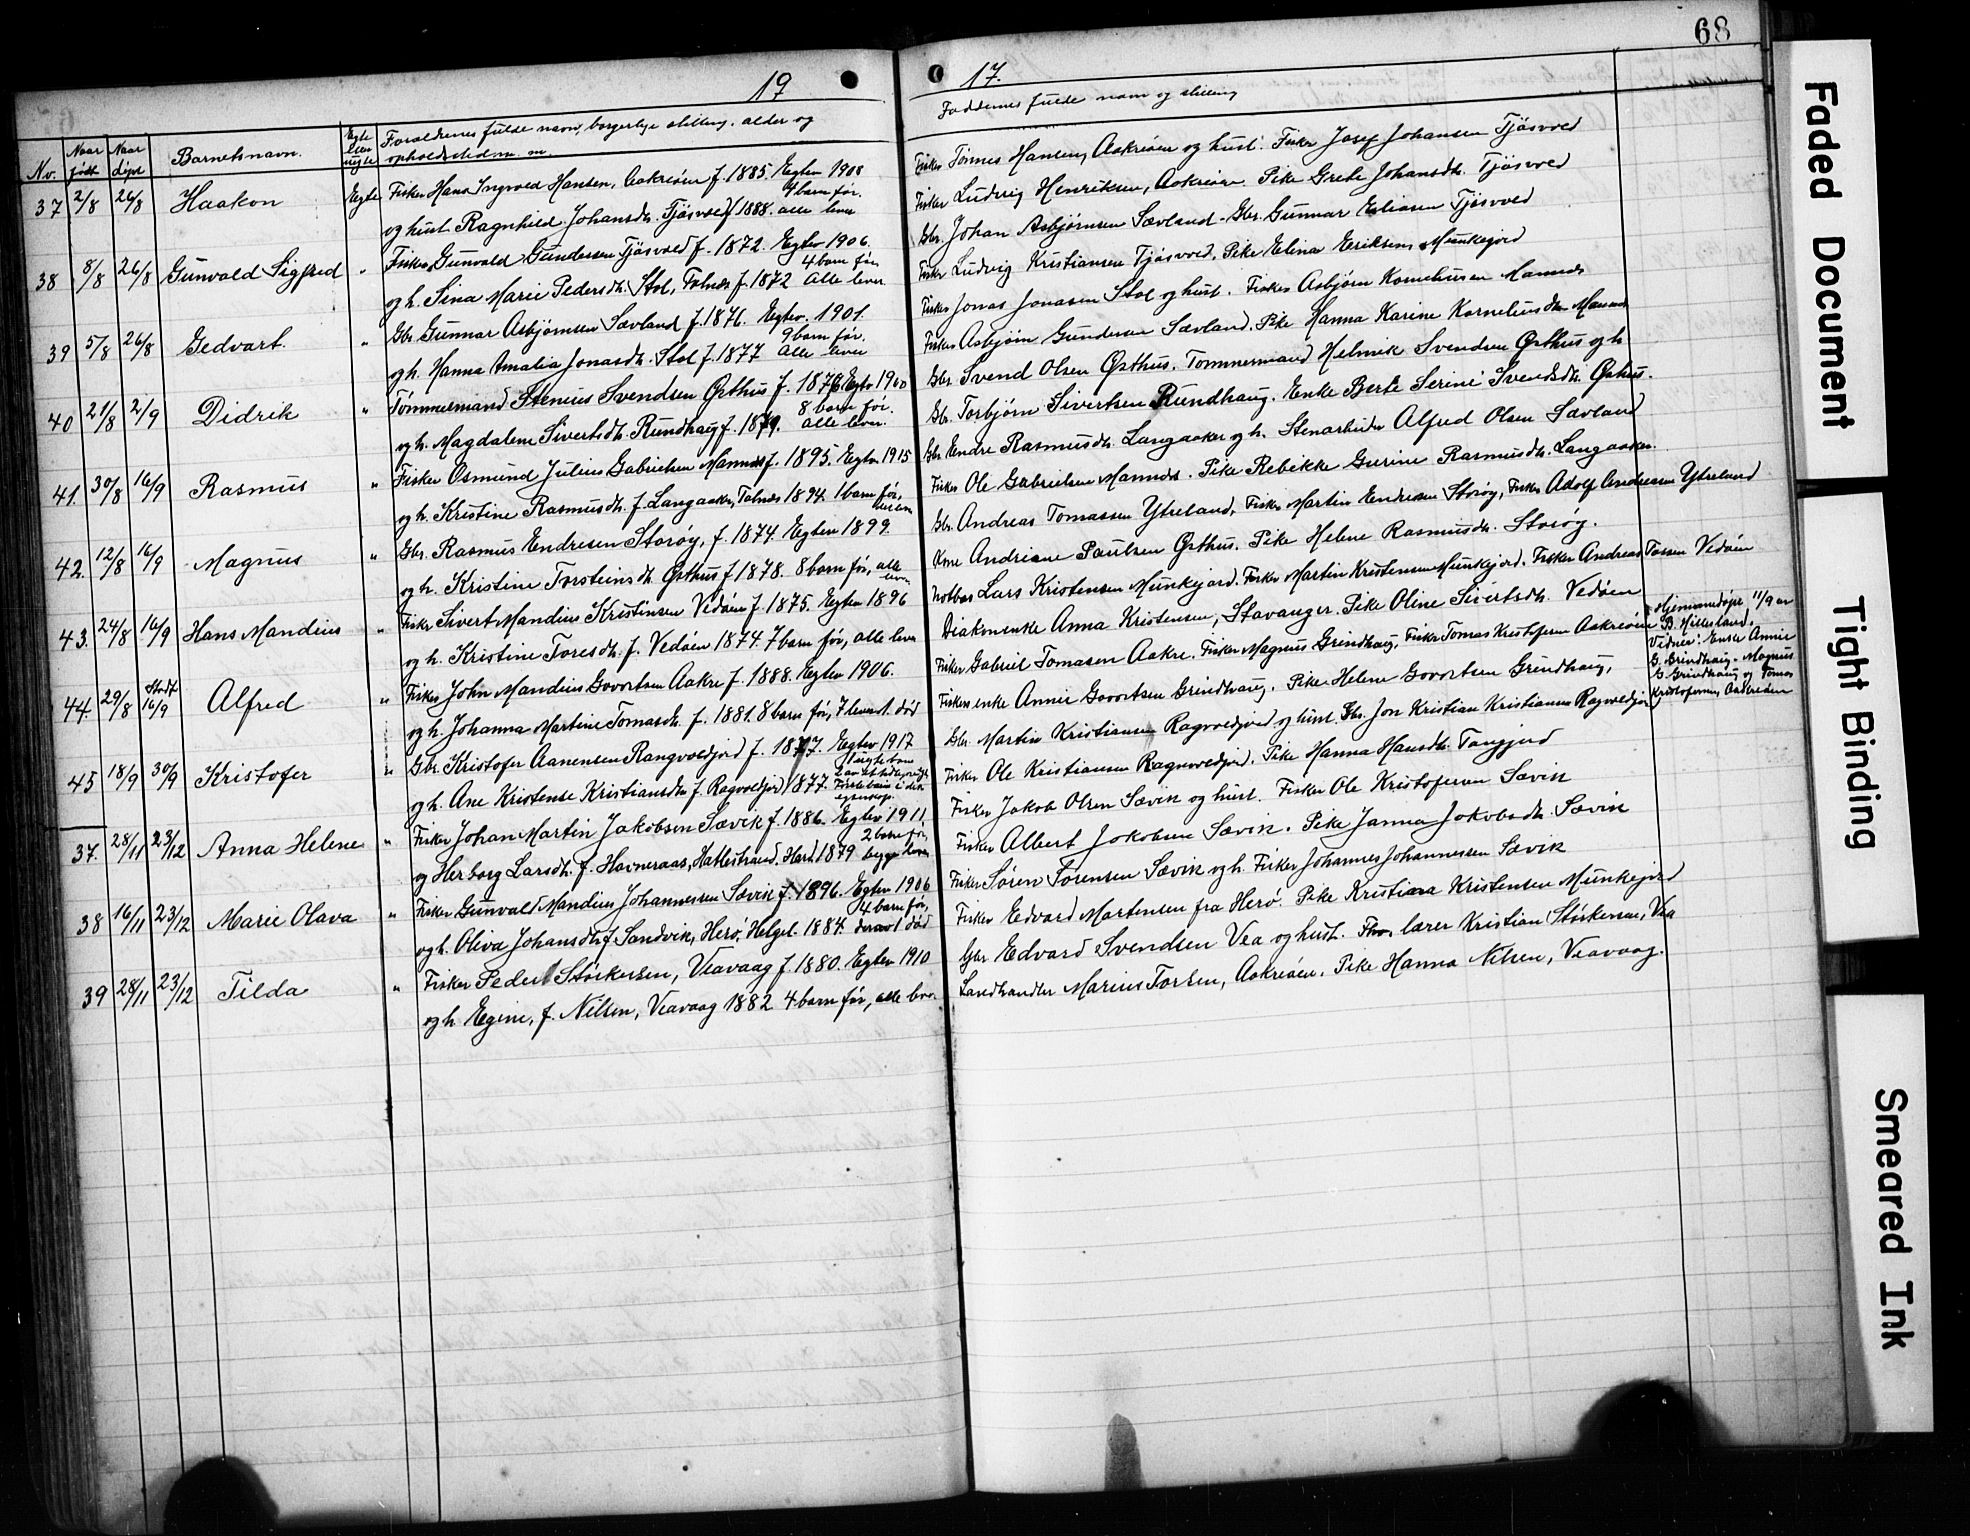 68
19
17.
No.
Naar født
Naar døpt
Barnets navn.
Egte eller uegte
Forældrenes fulde navn, borgerlige stilling, alder og
opholdssted m. m.
Faddernes fulde navn og stilling
37 2/8 26/8 Haakon Egte Fisker Hans Ingvold Hansen, Aakreøen f. 1885. Egtev 1908
4 barn før.
og hust. Ragnhild Johansdt. Tjøsvold f 1888. alle lever
Fisker Tønnes Hansen, Aakreøen og hust. Fisker Josef Johansen Tjøsvold
Fisker Ludvig Henriksen, Aakreøen. Pike Grete Johansdt. Tjøsvold
38 8/8 26/8 Gunvald Sigfred " Fisker Gunvald Gundersen Tjøsvold f. 1872. Egtev 1906.
4 barn før
og h. Sina Marie Pedersdt. Stol, Falnes f. 1872 Alle lever
Gbr. Johan Asbjørnsen Sævland. Gbr. Gunnar Eliasen Tjøsvold
Fisker Ludvig Kristiansen Tjøsvold. Pike Elina Eriksen, Munkejord
39 5/8 26/8 Gedvart. " Gbr. Gunnar Asbjørnsen Sævland f. 1876. Egtev. 1901.
9 barn før.
og h. Hanna Amalia Jonasdt. Stol f. 1877 Alle lever
Fisker Jonas Jonasen Stol og hust. Fisker Asbjørn Korneliusen Mannes
Fisker Asbjørn Gundersen Sævland. Pike Hanna Karine Korneliusdtr Mannes
40 21/8 2/9 Didrik " Tømmermand Stenius Svendsen Østhus f. 1876 Egtev 1900
8 barn før.
og h. Magdalene Sivertsdt. Rundhaug f. 1879. alle lever.
Gbr. Svend Olsen Østhus. Tømmermand Helmik Svendsen Østhus og h
Gbr. Torbjørn Sivertsen Rundhaug. Enke Berte Serine Svendsdt. Østhus.
41. 30/8 16/9 Rasmus " Fisker Osmund Julius Gabrielsen Mannes f. 1895. Egtev 1915
og h. Kristine Rasmusdt. f. Langaaker, Falnes 1894. 1 barn før,
Gbr Endre Rasmusdt. Langaaker og h. Stenarbeider Alfred Olsen Sævland
Fisker Ole Gabrielsen Mannes. Pike Rebekke Gurine Rasmusdt. Langaaker.
42. 12/8 16/9 Magnus " Gbr. Rasmus Endresen Storøy, f. 1874. Egtev 1899.
og h. Kristine Torsteinsdt. Østhus f 1878. 8 barn før, alle
lever
Gbr. Andreas Tomassen Ytreland, Fisker Martin Endresen Storøy, Fisker Adolf Andreasen Ytreland
Kone Andriane Paulsen Østhus. Pike Helene Rasmusdt. Storøy.
43. 24/8 16/9 Hans Mandius " Fisker Sivert Mandius Kristinsen Vedøen f. 1875. Egtev 1896
og h. Kristine Toresdt. f. Vedøen 1874. 7 barn før, alle lever
Notbas Lars Kristensen Munkejord. Fisker Martin Kristensen Munkejord. Fisker Andreas Tossen Vedøen
Diakonenke Anna Kristensen, Stavanger. Pike Oline Sivertsdt. Vedøen
44. 29/8 Stadf 16/9 Alfred " Fisker John Mandius Govertsen Aakre f. 1888. Egtev 1906.
og h. Johanna Martine Tomasdt. f. 1881. 8 barn før, 7 lever 1 død
Fisker Gabriel Tomasen Aakre. Fisker Magnus Grindhaug, Fisker Tomas Kristofersen Aakreøen
Fiskers enke Annie Govertsen Grindhaug. Pike Helene Govertsen Grindhaug,
Hjemmedøpt 11/9 av
B. Hillesland.
Vidner: Enke Annie
G. Grindhaug - Magnus
G. Grindhaug og Tomas
Kristofersen, Aakreøen
45 18/9 30/9 Kristofer " Gbr. Kristofer Aanensen Rangvoldjord f. 1877. Egtev 1917
og h. Ane Kristense Kristiansdt. f. Ragvoldjord 1877. Første barn i dette
egteskap.
Gbr. Martin Kristiansen Ragvoldjord og hust. Gbr. Jon Kristian Kristiansen Ragvoldjord
Fisker Ole Kristiansen Ragnvoldjord. Pike Hanna Hansdt. Tangjerd
37. 28/11 23/12 Anna Helene " Fisker Johan Martin Jakobsen Sævik f. 1886. Egtev 1911
2 barn før,
og Herborg Larsdt. f. Havneraas, Hattestrand. Hard. 1879 begge lever
Fisker Jakob Olsen Sævik og hust. Fisker Ole Kristofersen Sævik
Fisker Albert Jakobsen Sævik. Pike Janna Jakobsdt. Sævik
38 16/11 23/12 Marie Olava " Fisker Gunvald Mandius Johannessen Sævik f. 1896. Egtev 1906
4 barn før,
og h. Oliva Johansdt. f. Sandvik, Herø, Helgel. 1884. derav 1 død
Fisker Søren Sørensen Sævik og h. Fisker Johannes Johannessen Sævik
Fisker Edvard Martensen fra Herø. Pike Kristiana Kristensen Munkejord
39 28/11 23/12 Tilda " Fisker Peder Størkersen, Veavaag f. 1880. Egtev 1910
og h. Egine, f. Nilsen, Veavaag 1882 4 barn før, alle lever
Gbr Edvard Svendsen Vea og hust. lærer Kristian Størkersen, Vea
Landhandler Marius Torsen, Aakreøen. Pike Hanna Nilsen, Veavaag.
Faded Document
Tight Binding
Smeared Ink